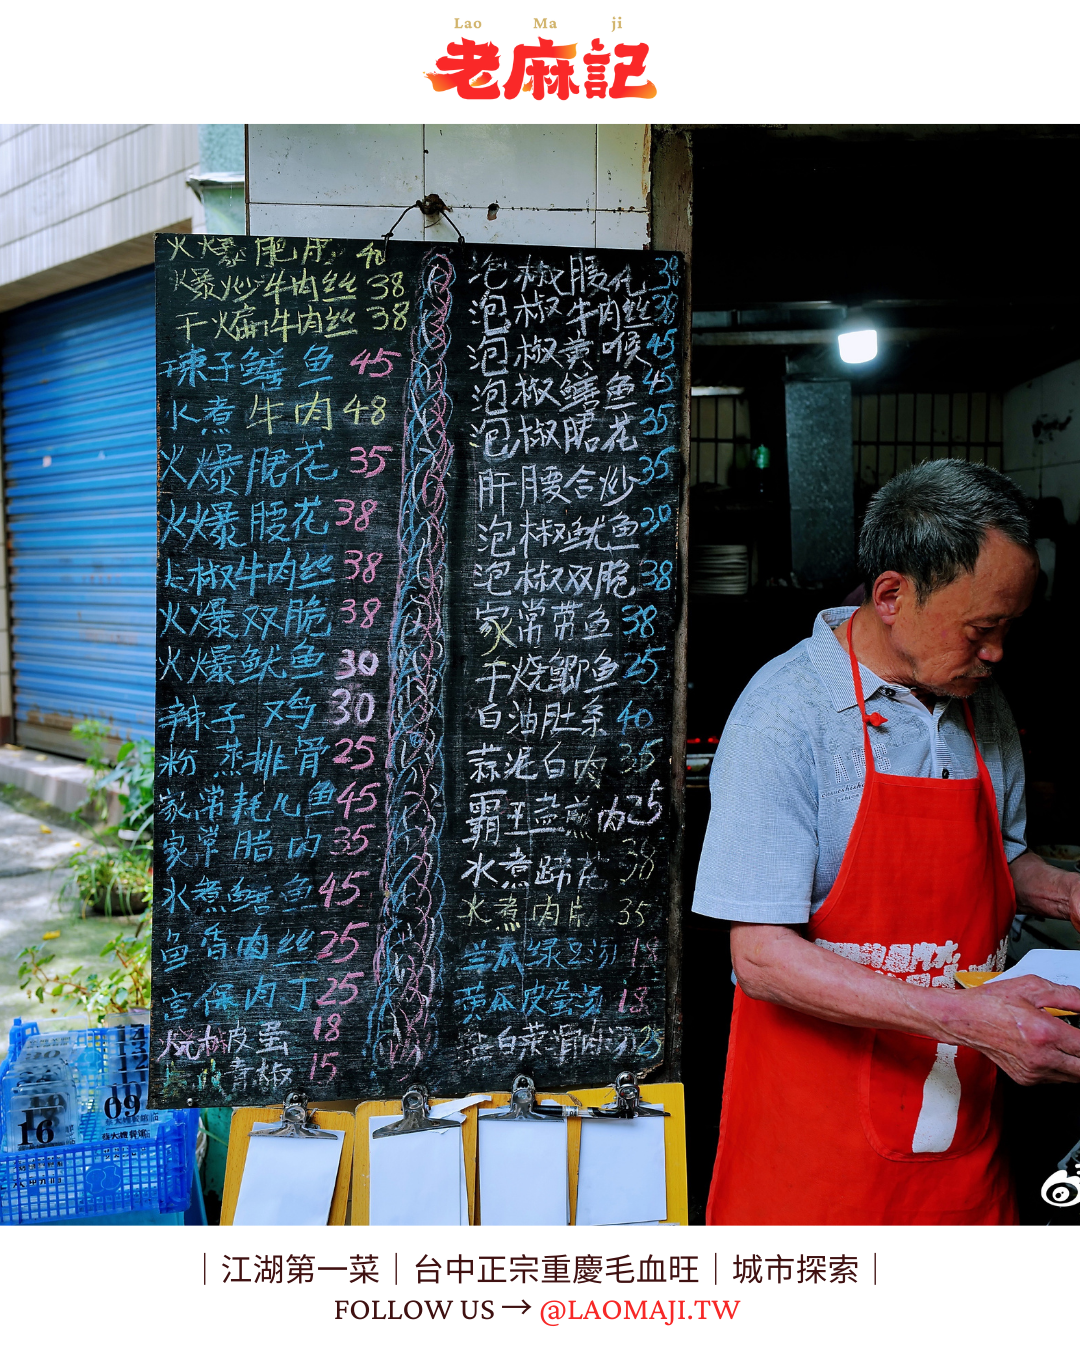 Lao Ma ji
老麻記
火爆肥肝 40
爆炒牛肉丝 38
干煸牛肉丝 38
辣子鳝鱼 45
水煮牛肉 48
火爆腒花 35
火爆腰花 38
椒牛肉丝 38
火爆双脆 38
火爆鱿鱼 30
辣子鸡 30
粉蒸排骨 25
家常耗儿鱼 45
家常腊肉 35
水煮鳝鱼 45
鱼香肉丝 25
宫保肉丁 25
烧皮蛋 18
青椒 15
泡椒腰花 38
泡椒牛肉丝 38
泡椒黄喉 45
泡椒鳝鱼 45
泡椒腒花 35
肝腰合炒 35
泡椒鱿鱼 30
泡椒双脆 38
家常带鱼 38
干烧鲫鱼 25
白油肚条 40
蒜泥白肉 35
霸王盐煎肉 25
水煮蹄花 38
水煮肉片 35
绿豆汤 18
黄瓜皮蛋汤 18
白菜滑肉汤 25
09
16
｜江湖第一菜｜台中正宗重慶毛血旺｜城市探索｜
FOLLOW US → @LAOMAJI.TW